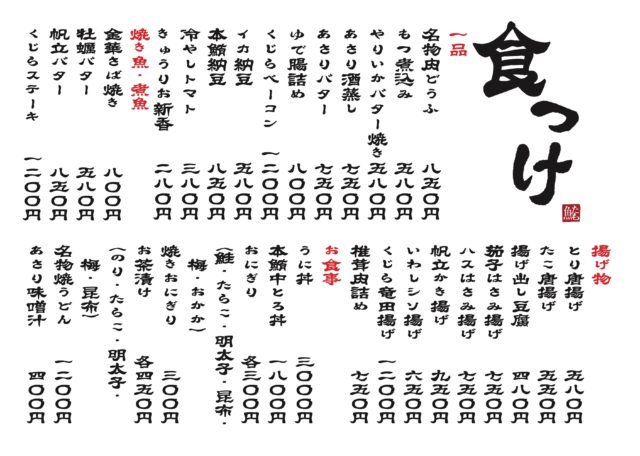 食つけ
一品
名物肉どうふ 八五〇円
もつ煮込み 五八〇円
やりいかバター焼き 五八〇円
あさり酒蒸し 七五〇円
あさりバター 七五〇円
ゆで腸詰め 八〇〇円
くじらベーコン 一二〇〇円
イカ納豆 五五〇円
本鮪納豆 八五〇円
冷やしトマト 三八〇円
きゅうりお新香 二八〇円
焼き魚・煮魚
金華さば焼き 八〇〇円
牡蠣バター 五八〇円
帆立バター 八五〇円
くじらステーキ 一二〇〇円
揚げ物
とり唐揚げ 五八〇円
たこ唐揚げ 五五〇円
揚げ出し豆腐 四八〇円
茄子はさみ揚げ 七五〇円
ハスはさみ揚げ 七五〇円
帆立かき揚げ 九五〇円
いわしシソ揚げ 六五〇円
くじら竜田揚げ 一二〇〇円
椎茸肉詰め 七五〇円
お食事
うに丼 三〇〇〇円
本鮪中とろ丼 一八〇〇円
おにぎり 各三〇〇円
(鮭・たらこ・明太子・昆布・
梅・おかか)
焼きおにぎり 三〇〇円
お茶漬け 各四五〇円
(のり・たらこ・明太子・
梅・昆布)
名物焼うどん 一二〇〇円
あさり味噌汁 四〇〇円